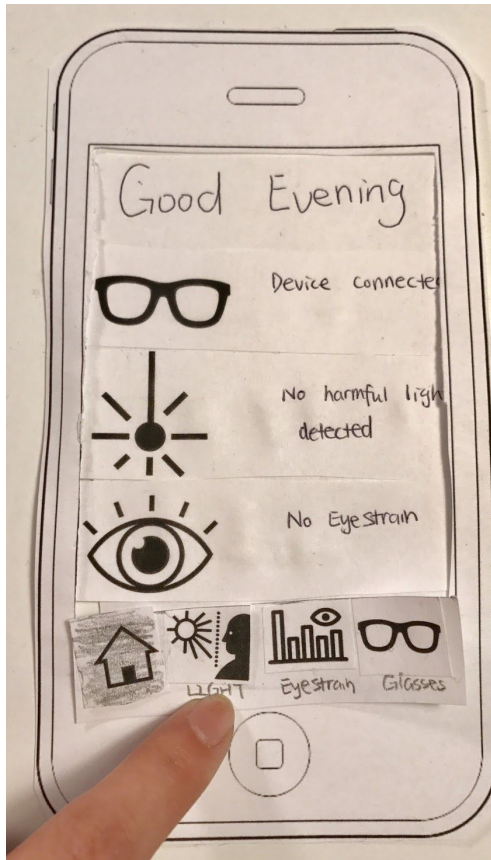 Good Evening
Device connecte
No harmful ligh
detected
No Eyestrain
LIGHT Eyestrain Glasses